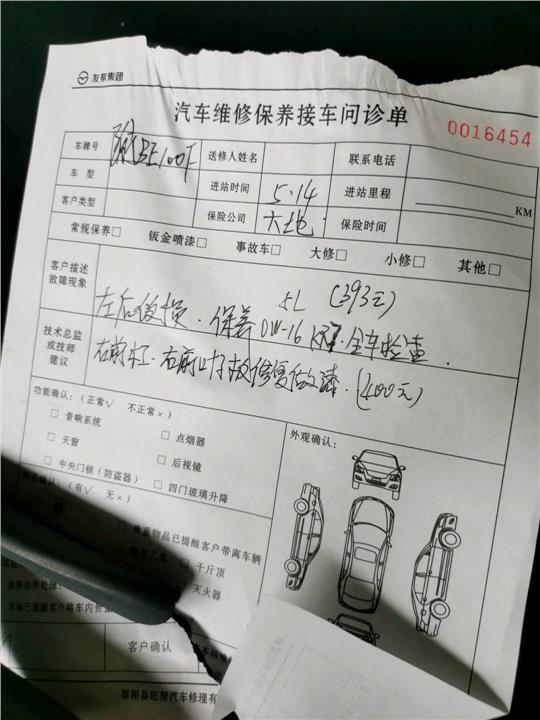 友帮集团
汽车维修保养接车问诊单
0016454
车牌号 送修人姓名 联系电话
车型 进站时间 5.14 进站里程 KM
客户类型 保险公司 大地 保险时间
常规保养□ 钣金喷漆□ 事故车□ 大修□ 小修□ 其他□
客户描述
故障现象
5L (393元)
左后侧损.保养 OW-16 全车检查.
技术总监
或技师
建议
右前杠.右前叶子板修复做漆.(400元)
功能确认:(正常√ 不正常×)
□ 音响系统 □ 点烟器
□ 天窗 □ 后视镜
□ 中央门锁(防盗器) □ 四门玻璃升降
外观确认:
确认:(有√ 无×)
贵重物品已提醒客户带离车辆
工具 □ 千斤顶
□ 灭火器
客户确认
县旺帮汽车修理有